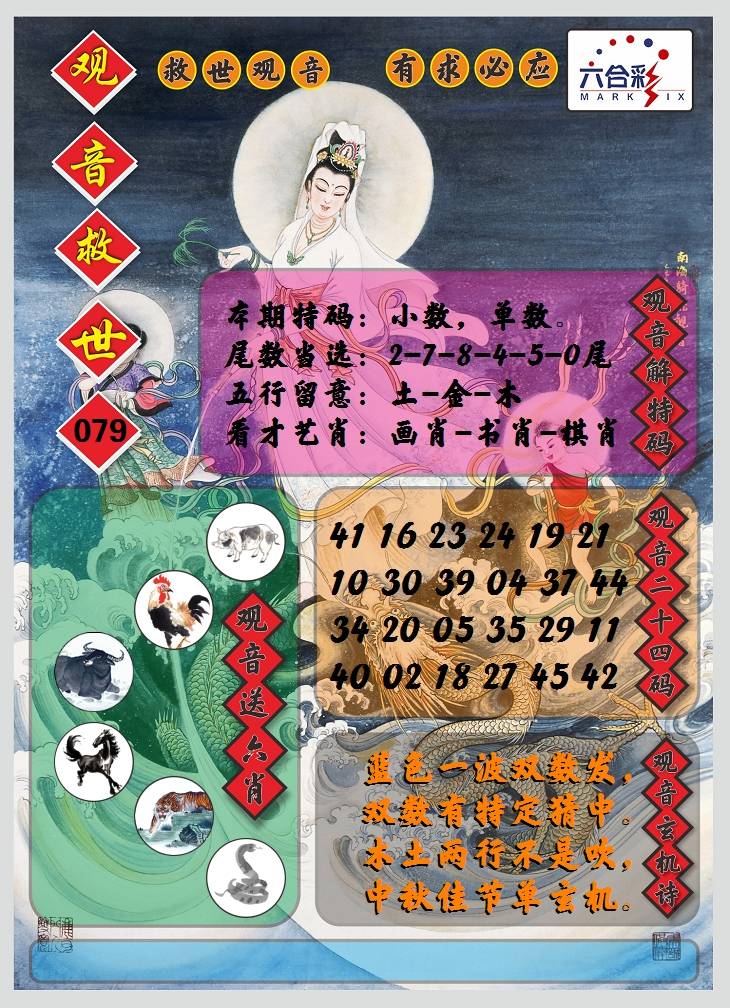 观音救世
079
救世观音 有求必应
六合彩
MARK SIX
本期特码：小数，单数。
尾数当选：2-7-8-4-5-0尾
五行留意：土-金-木
看才艺肖：画肖-书肖-棋肖
观音解特码
41 16 23 24 19 21
10 30 39 04 37 44
34 20 05 35 29 11
40 02 18 27 45 42
观音二十四码
观音送六肖
蓝色一波双数发，
双数有特定猜中。
木土两行不是吹，
中秋佳节单玄机。
观音玄机诗